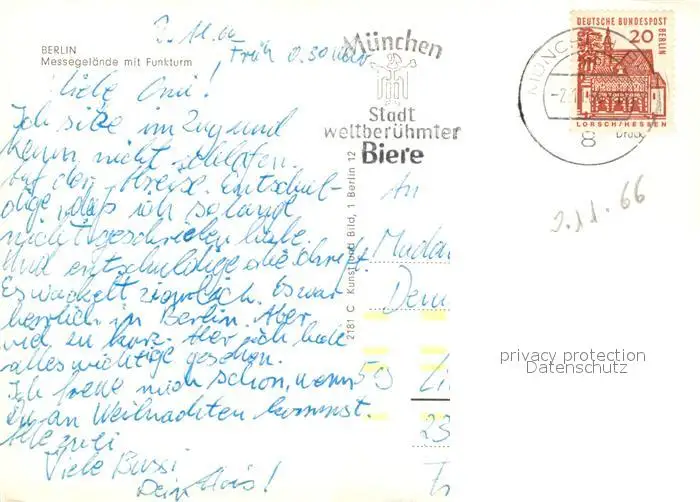 BERLIN
Messegelände mit Funkturm
Früh 0.30 Uhr
Liebe Omi!
Ich sitze im Zug und
kann nicht schlafen.
Auf der Heimreise. Entschul-
dige, daß ich so lange
nicht geschrieben habe.
Und entschuldige die Schrift
Es wackelt ziemlich. Es war
herrlich in Berlin. Aber
viel zu kurz. Aber ich habe
alles wichtige gesehen.
Ich freue mich schon, wenn
Du an Weihnachten kommst.
Alle zwei
Viele Bussi
Dein Alois!
München
Stadt
weltberühmter
Biere
2181 C Kunst und Bild, 1 Berlin 12
An
Madam
23
DEUTSCHE BUNDESPOST
BERLIN
20
LORSCH/HESSEN
MÜNCH
8
Druck
2.11.66
privacy protection
Datenschutz